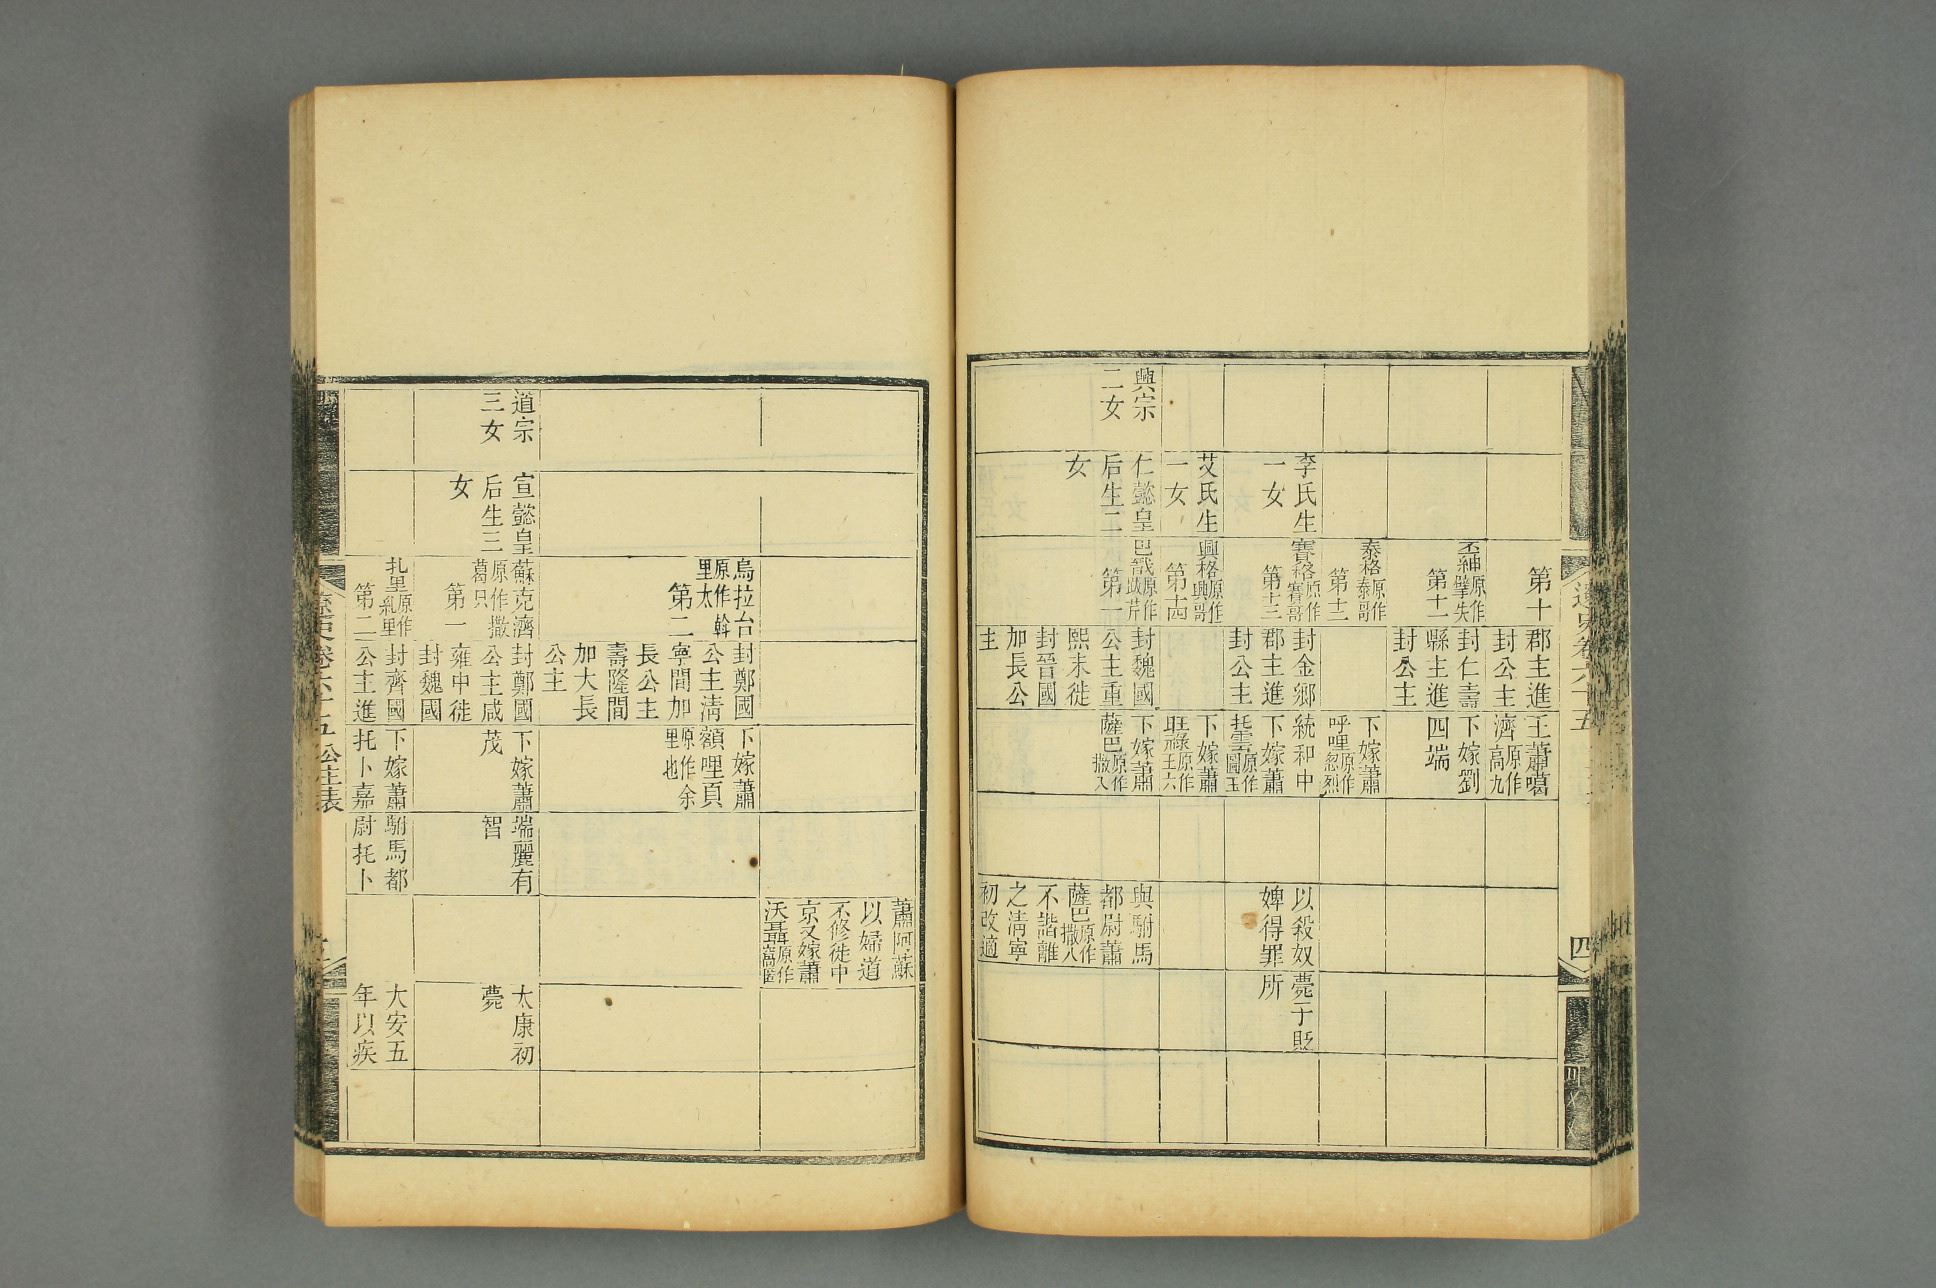 遼史卷六十五
四
第十
郡主進
封公主
王蕭噶
濟原作高九
丕紳原作擘失
第十一
封仁壽
縣主進
封公主
下嫁劉
四端
泰格原作泰哥
第十二
下嫁蕭
呼哩原作忽烈
李氏生
一女
賽格原作賽哥
第十三
封金鄉
郡主進
封公主
統和中
下嫁蕭
托雲原作圖玉
以殺奴
婢得罪
薨于貶
所
艾氏生
一女
興格原作興哥
第十四
下嫁蕭
旺祿原作王六
興宗
二女
仁懿皇
后生二
女
巴哉原作跋芹
第一
封魏國
公主重
熙末徙
封晉國
加長公
主
下嫁蕭
薩巴原作撒八
與駙馬
都尉蕭
薩巴原作撒八
不諧離
之淸寧
初改適
蕭阿蘇
以婦道
不修徙中
京又嫁蕭
沃聶原作窩匿
烏拉台
原作斡里太
第二
封鄭國
公主淸
寧間加
長公主
壽隆間
加大長
公主
下嫁蕭
額哩頁
原作余里也
道宗
三女
宣懿皇
后生三
女
蘇克濟
原作撒葛只
第一
封鄭國
公主咸
雍中徙
封魏國
下嫁蕭
茂
端麗有
智
太康初
薨
扎里原作糺里
第二
封齊國
公主進
下嫁蕭
托卜嘉
駙馬都
尉托卜
大安五
年以疾
遼史卷六十五 公主表